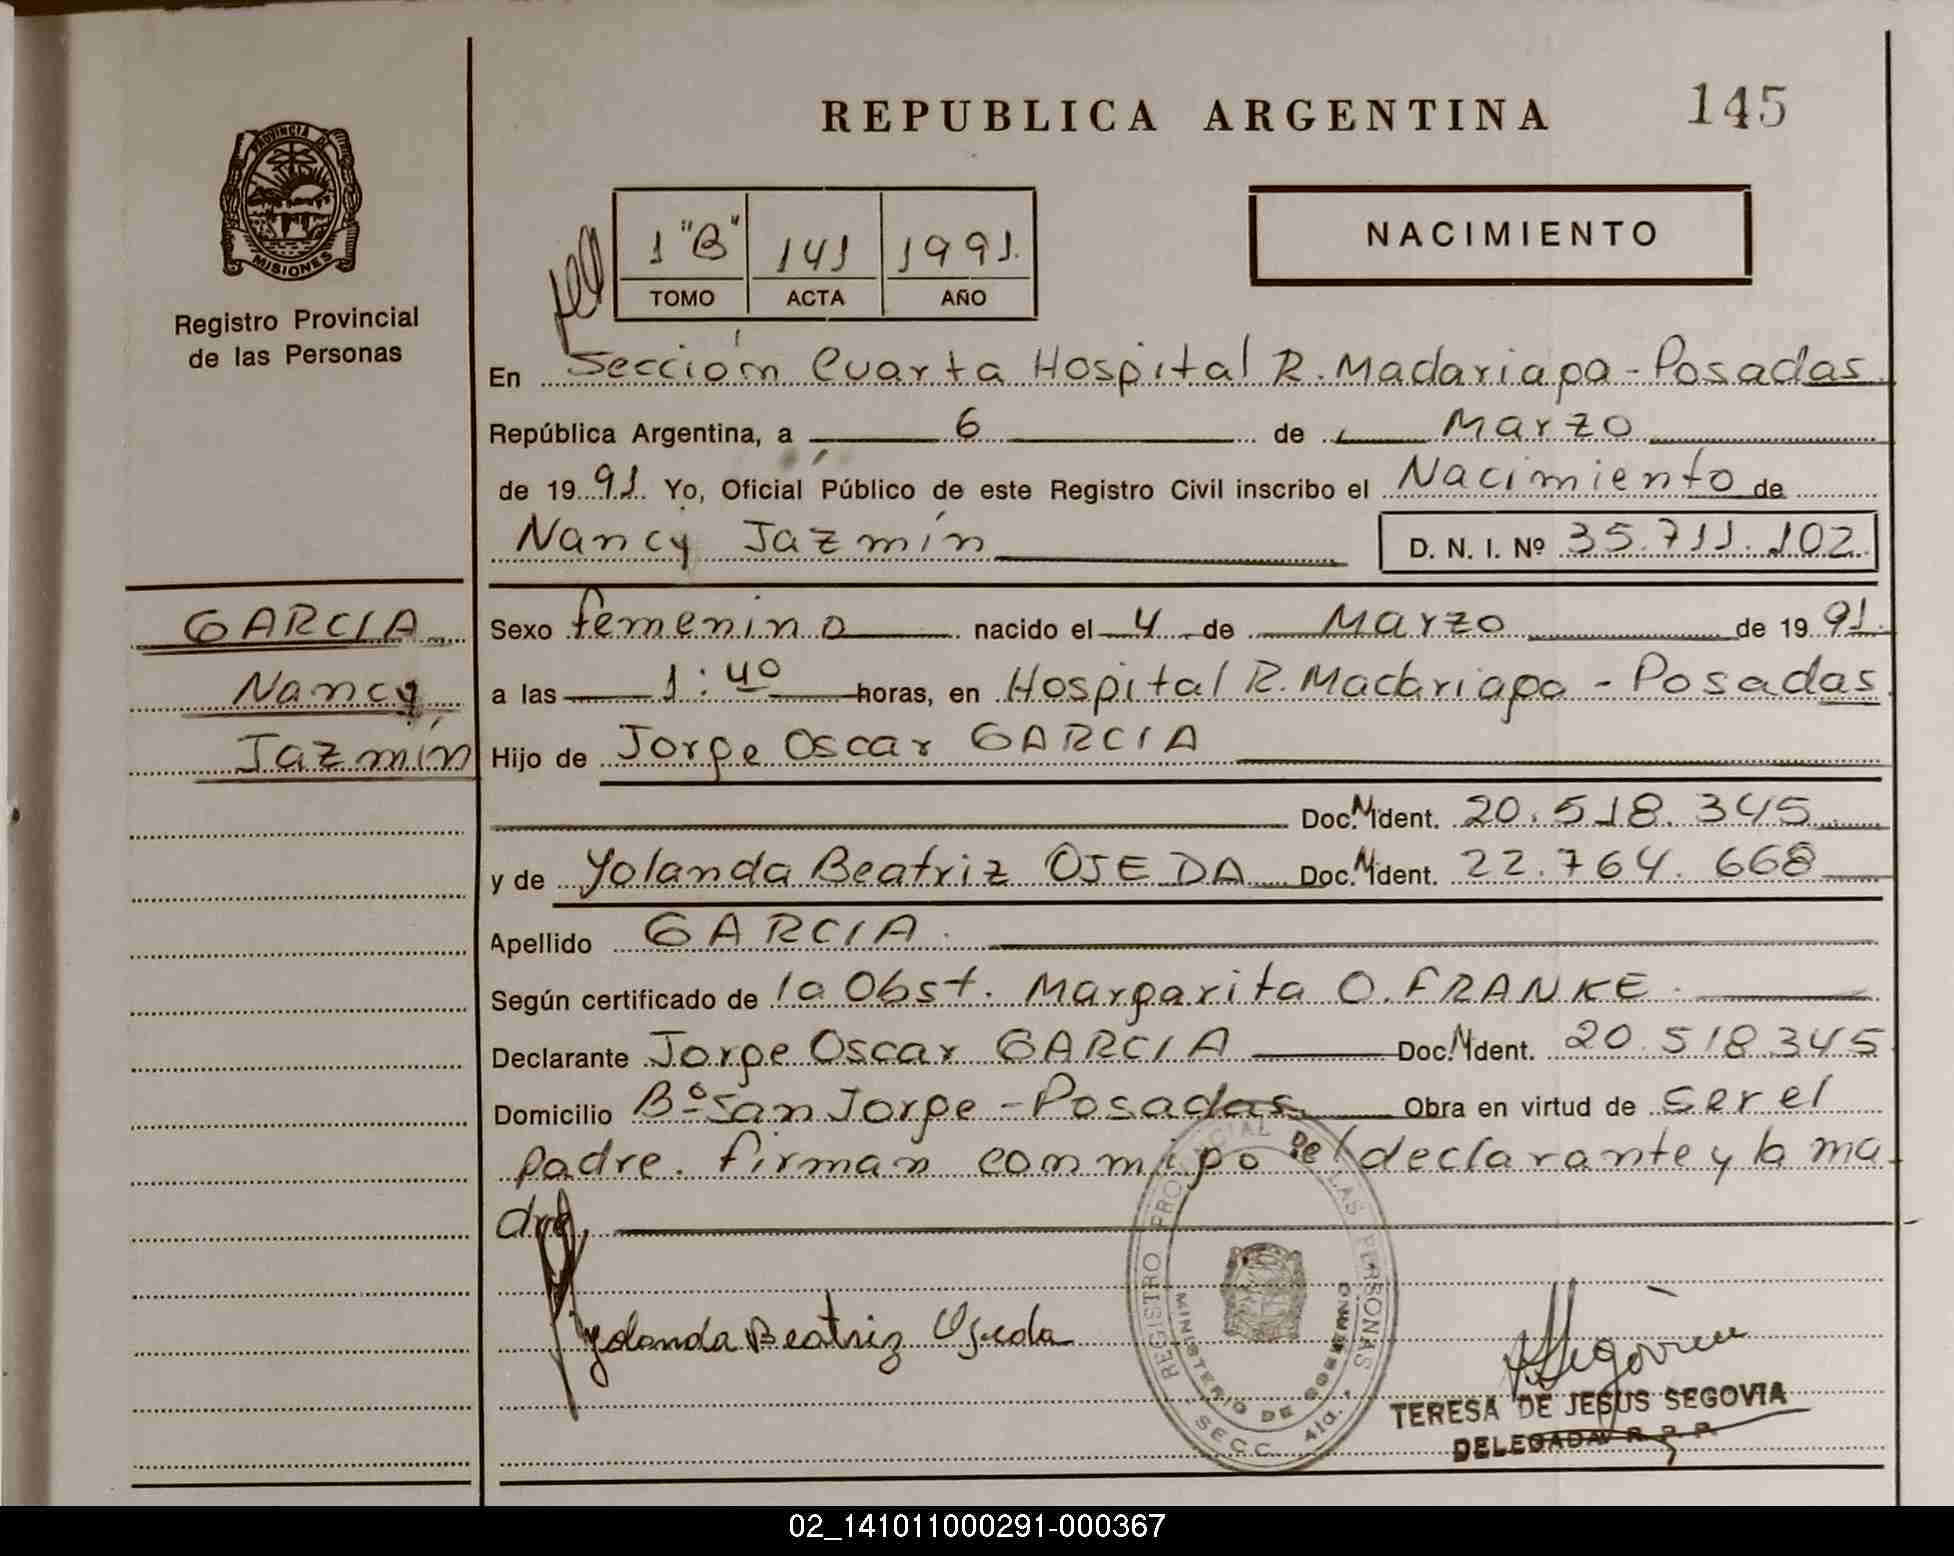 REPUBLICA ARGENTINA
145
PROVINCIA D
MISIONES
Registro Provincial
de las Personas
1 "B" 141 1991.
TOMO ACTA AÑO
NACIMIENTO
En Sección Cuarta Hospital R. Madariaga - Posadas
República Argentina, a 6 de Marzo
de 1991. Yo, Oficial Público de este Registro Civil inscribo el Nacimiento de
Nancy Jazmín D. N. I. Nº 35.711.102
GARCIA
Nancy
Jazmín
Sexo femenino nacido el 4 de Marzo de 1991.
a las 1:40 horas, en Hospital R. Madariaga - Posadas
Hijo de Jorge Oscar GARCIA
Doc. N. Ident. 20.518.345
y de Yolanda Beatriz OJEDA Doc. N. Ident. 22.764.668
Apellido GARCIA.
Según certificado de la Obst. Margarita O. FRANKE.
Declarante Jorge Oscar GARCIA Doc. N. Ident. 20.518.345
Domicilio Bº San Jorge - Posadas Obra en virtud de ser el
padre. firman conmigo el declarante y la ma
dre.
Yolanda Beatriz Ojeda
REGISTRO PROVINCIAL DE LAS PERSONAS
MINISTERIO DE GOBIERNO
SECC. 4ta.
Segovia
TERESA DE JESUS SEGOVIA
DELEGADA R. P. P.
02_141011000291-000367